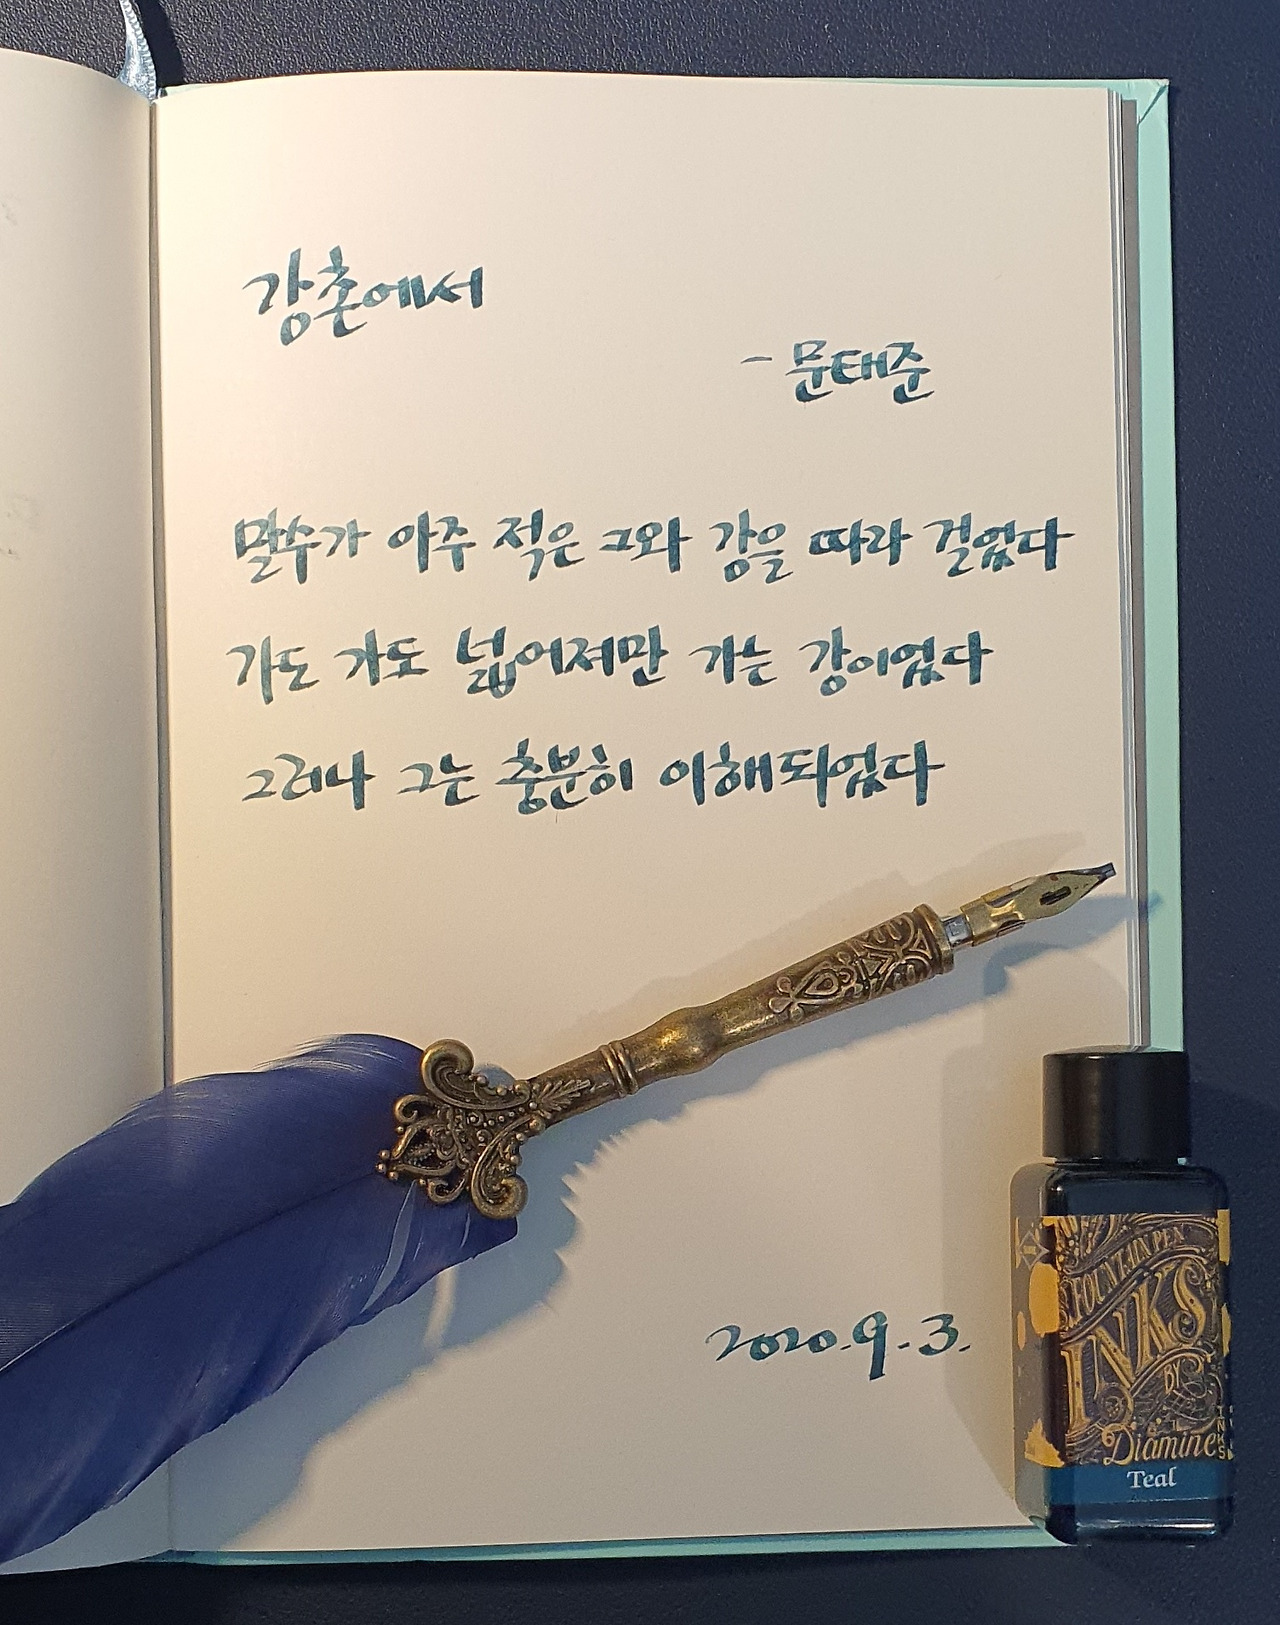 강촌에서
- 문태준
말수가 아주 적은 그와 강을 따라 걸었다
가도 가도 넓어져만 가는 강이었다
그러나 그는 충분히 이해되었다
2020.9.3.
FOUNTAIN PEN
INKS
BY
Diamine
Teal